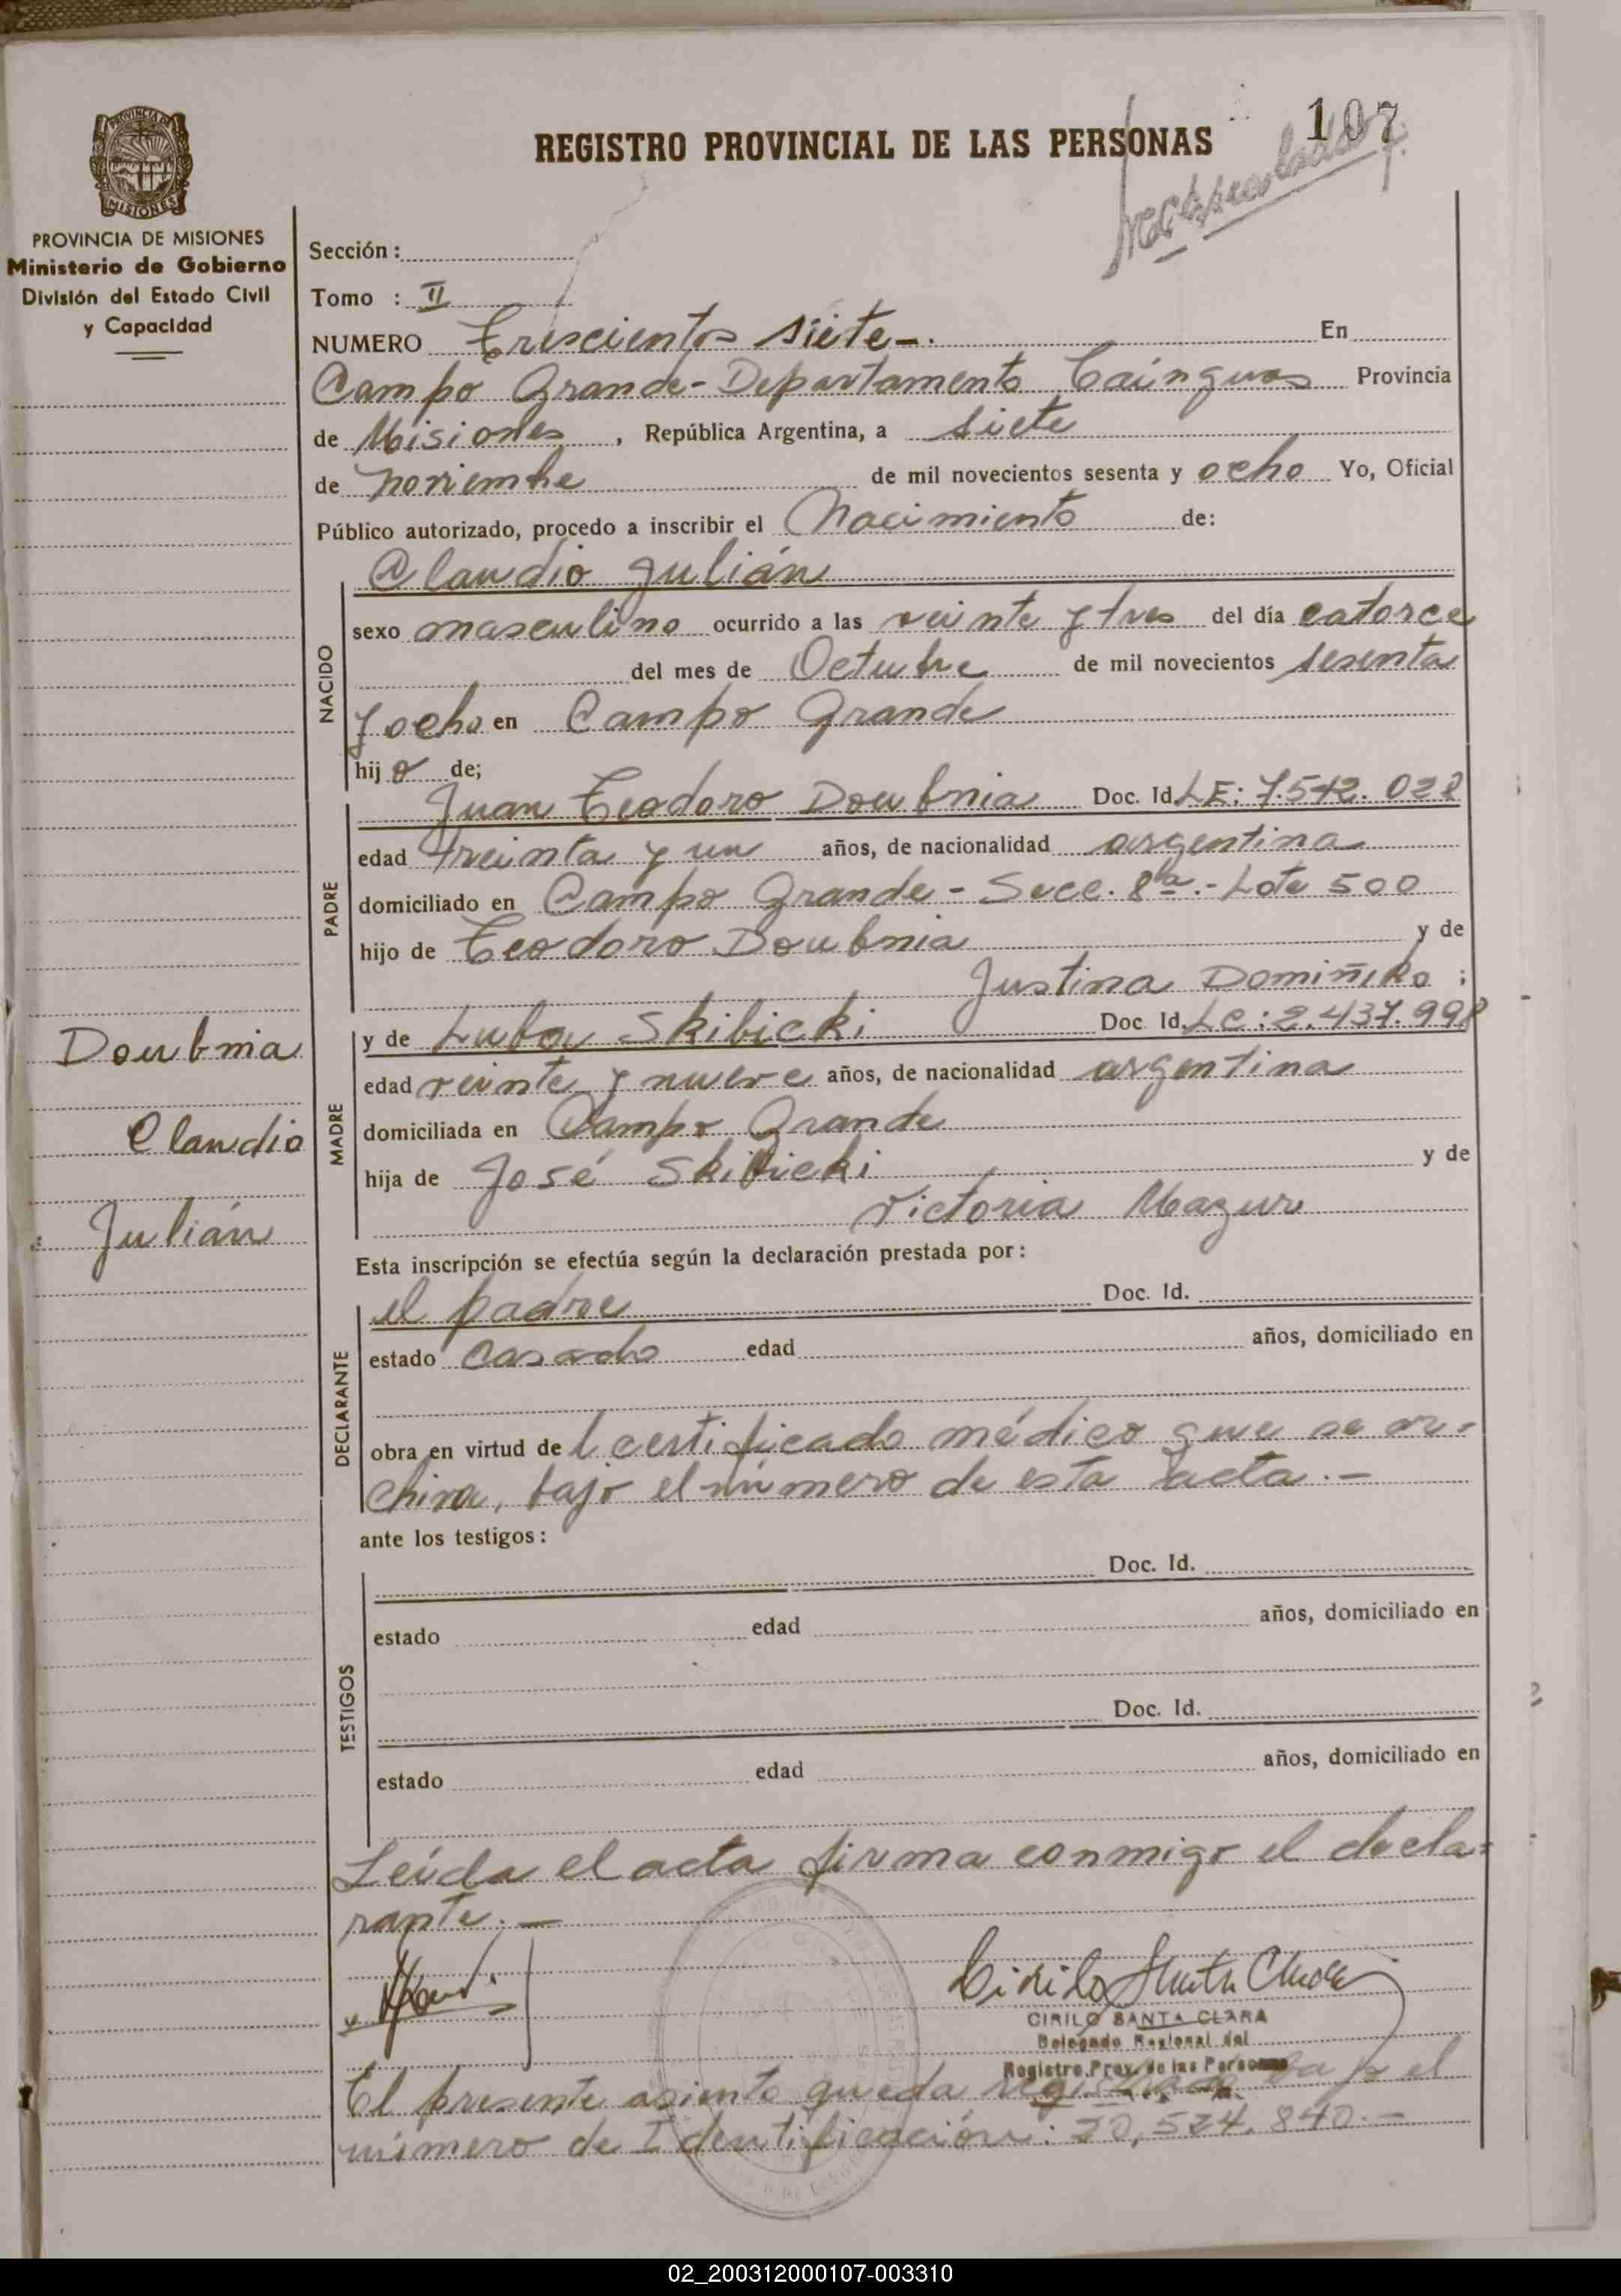 107
REGISTRO PROVINCIAL DE LAS PERSONAS
PROVINCIA DE
MISIONES
PROVINCIA DE MISIONES
Ministerio de Gobierno
División del Estado Civil
y Capacidad
Sección:
Tomo : II
NUMERO Trescientos siete-. En
Campo Grande- Departamento Cainguas Provincia
de Misiones, República Argentina, a siete
de noviembre de mil novecientos sesenta y ocho Yo, Oficial
Público autorizado, procedo a inscribir el Nacimiento de:
Claudio Julián
NACIDO
sexo masculino ocurrido a las veinte y tres del día catorce
del mes de Octubre de mil novecientos sesenta
y ocho en Campo Grande
hijo de;
PADRE
Juan Teodoro Doubnia Doc. Id. LE: 7.542.028
edad treinta y un años, de nacionalidad argentina
domiciliado en Campo Grande - Secc. 8ª.- Lote 500
hijo de Teodoro Doubnia y de
Justina Domiñiko;
MADRE
y de Luboy Skibicki Doc. Id. LC: 2.437.998
edad veinte y nueve años, de nacionalidad argentina
domiciliada en Campo Grande
hija de José Skibicki y de
Victoria Mazur
Doubnia
Claudio
Julián
Esta inscripción se efectúa según la declaración prestada por:
DECLARANTE
el padre Doc. Id.
estado casado edad años, domiciliado en
obra en virtud del certificado médico que se ar-
chiva, bajo el número de esta acta.-
ante los testigos:
TESTIGOS
Doc. Id.
estado edad años, domiciliado en
Doc. Id.
estado edad años, domiciliado en
Leída el acta firma conmigo el decla-
rante.-
Cirilo Santa Clara
CIRILO SANTA CLARA
Delegado Regional del
Registro Prov. de las Personas
El presente asiento queda bajo el
número de Identificación: 20,524.840.-
02_200312000107-003310